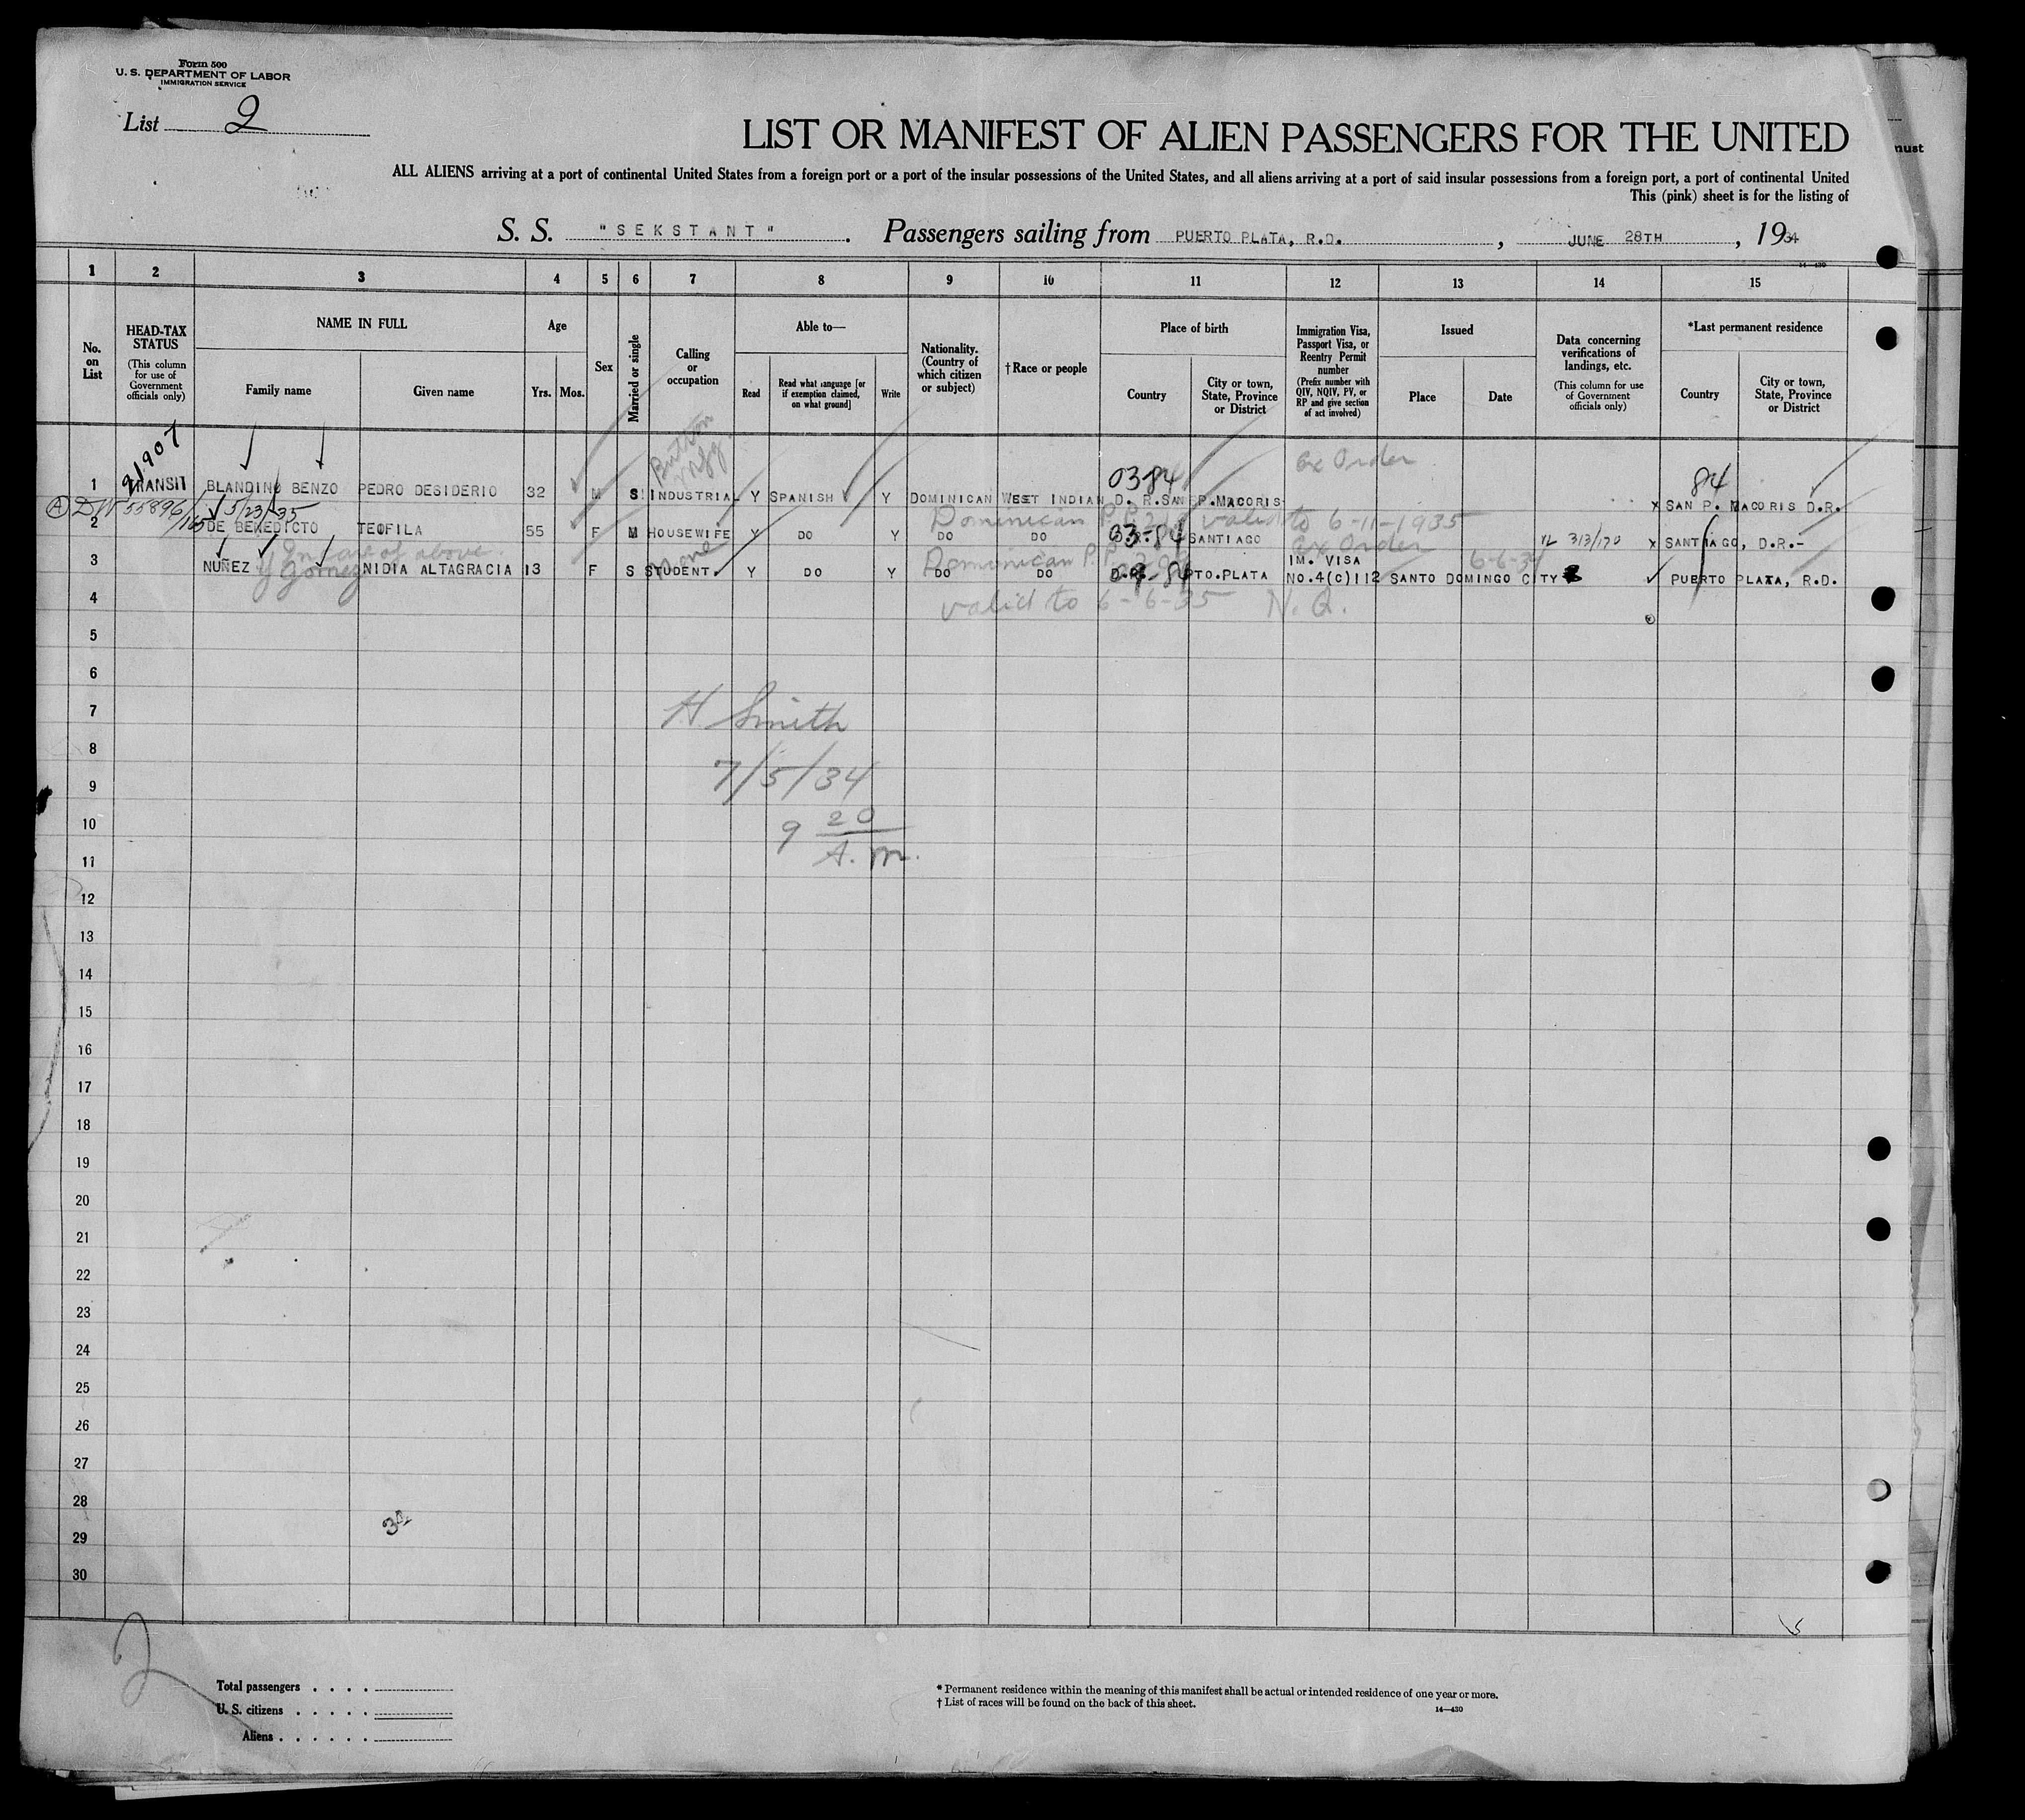 Form 500
U. S. DEPARTMENT OF LABOR
IMMIGRATION SERVICE
List 2
LIST OR MANIFEST OF ALIEN PASSENGERS FOR THE UNITED
must
ALL ALIENS arriving at a port of continental United States from a foreign port or a port of the insular possessions of the United States, and all aliens arriving at a port of said insular possessions from a foreign port, a port of continental United
This (pink) sheet is for the listing of
S. S. "SEKSTANT". Passengers sailing from PUERTO PLATA, R.D., JUNE 28TH, 1934
14-430
1 2 3 4 5 6 7 8 9 10 11 12 13 14 15
No. on List
HEAD-TAX STATUS
(This column for use of Government officials only)
NAME IN FULL
Family name
Given name
Age
Yrs. Mos.
Sex
Married or single
Calling or occupation
Able to—
Read
Read what language [or if exemption claimed, on what ground]
Write
Nationality. (Country of which citizen or subject)
†Race or people
Place of birth
Country
City or town, State, Province or District
Immigration Visa, Passport Visa, or Reentry Permit number
(Prefix number with QIV, NQIV, PV, or RP and give section of act involved)
Issued
Place
Date
Data concerning verifications of landings, etc.
(This column for use of Government officials only)
*Last permanent residence
Country
City or town, State, Province or District
91907
Button Mfg.
ex Order
0384
84
1 TRANSIT BLANDINO BENZO PEDRO DESIDERIO 32 M S INDUSTRIAL Y SPANISH Y DOMINICAN WEST INDIAN D. R. SAN P. MACORIS x SAN P. MACORIS D.R.
A DW 55896/165 5/23/35
Dominican P.P. valid to 6-11-1935
2 DE BENEDICTO TEOFILA 55 F M HOUSEWIFE Y DO Y DO DO 03-84 SANTIAGO ex Order VL 313/170 x SANTIAGO, D.R.-
In care of above.
none
Dominican P.P.
6-6-34
3 NUÑEZ y Gomez NIDIA ALTAGRACIA 13 F S STUDENT. Y DO Y DO DO D.R. PTO.PLATA IM. VISA NO.4(C)112 SANTO DOMINGO CITY PUERTO PLATA, R.D.
4 valid to 6-6-35 N. Q.
5
6
7 H Smith
8
9 7/5/34
10 9 20
11 A. M.
12
13
14
15
16
17
18
19
20
21
22
23
24
25
26
27
28
29
30
2
Total passengers . . . .
U. S. citizens . . . . .
Aliens . . . . . .
* Permanent residence within the meaning of this manifest shall be actual or intended residence of one year or more.
† List of races will be found on the back of this sheet.
14—430